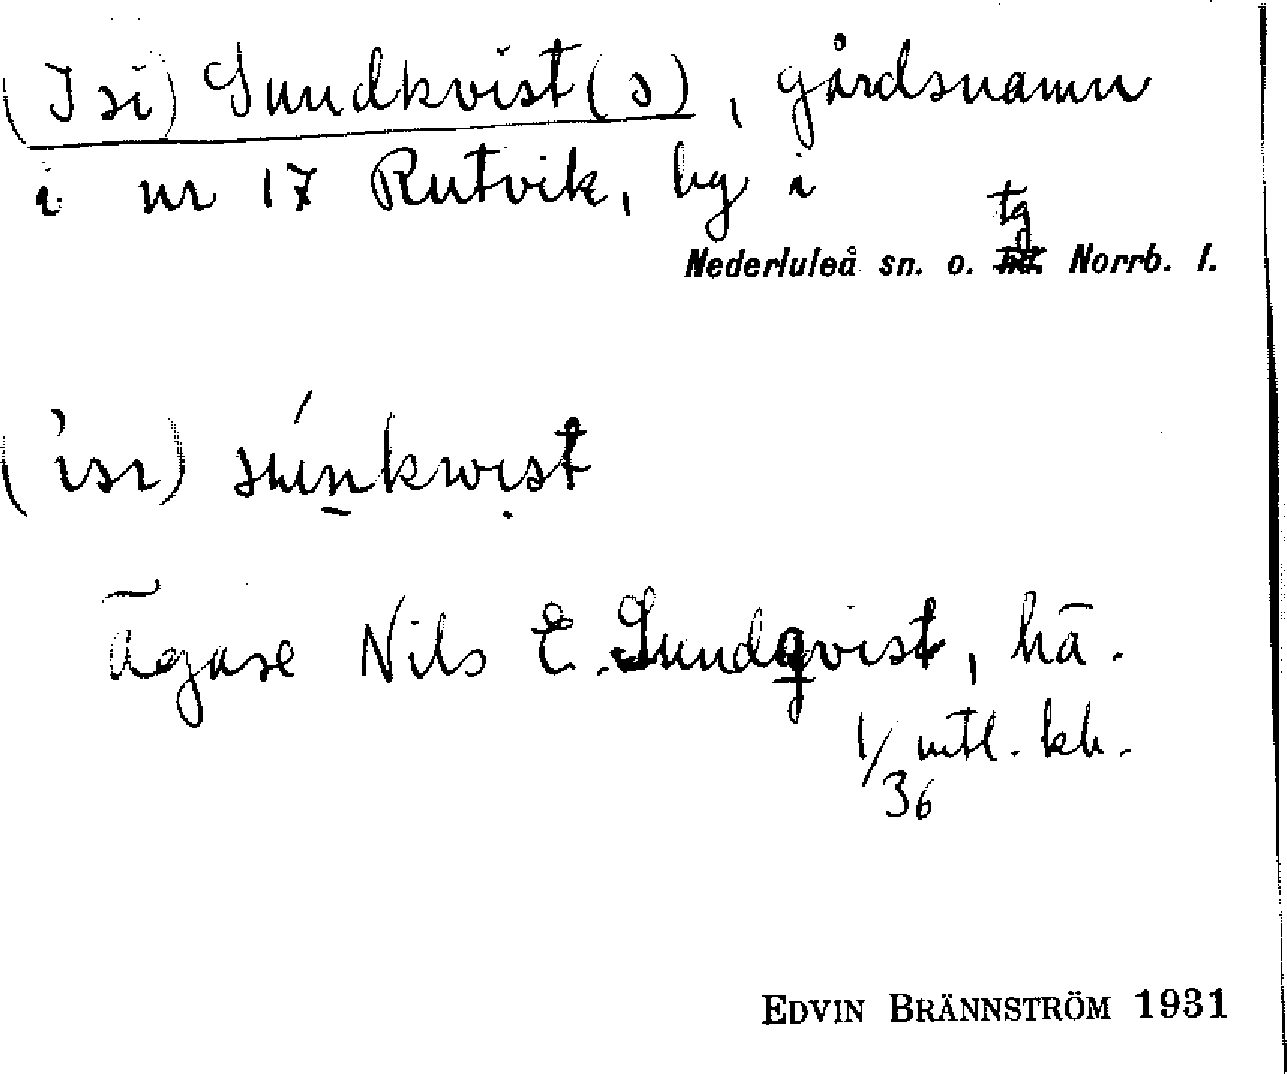 (Isi) Sundkvist(s), gårdsnamn
i nr 17 Rutvik, by i
tg
Nederluleå sn. o. Norrb. l.
(ısı) súnkwıst
Ägare Nils E. Sundqvist, hä.
1/36 mtl. kh.
EDVIN BRÄNNSTRÖM 1931